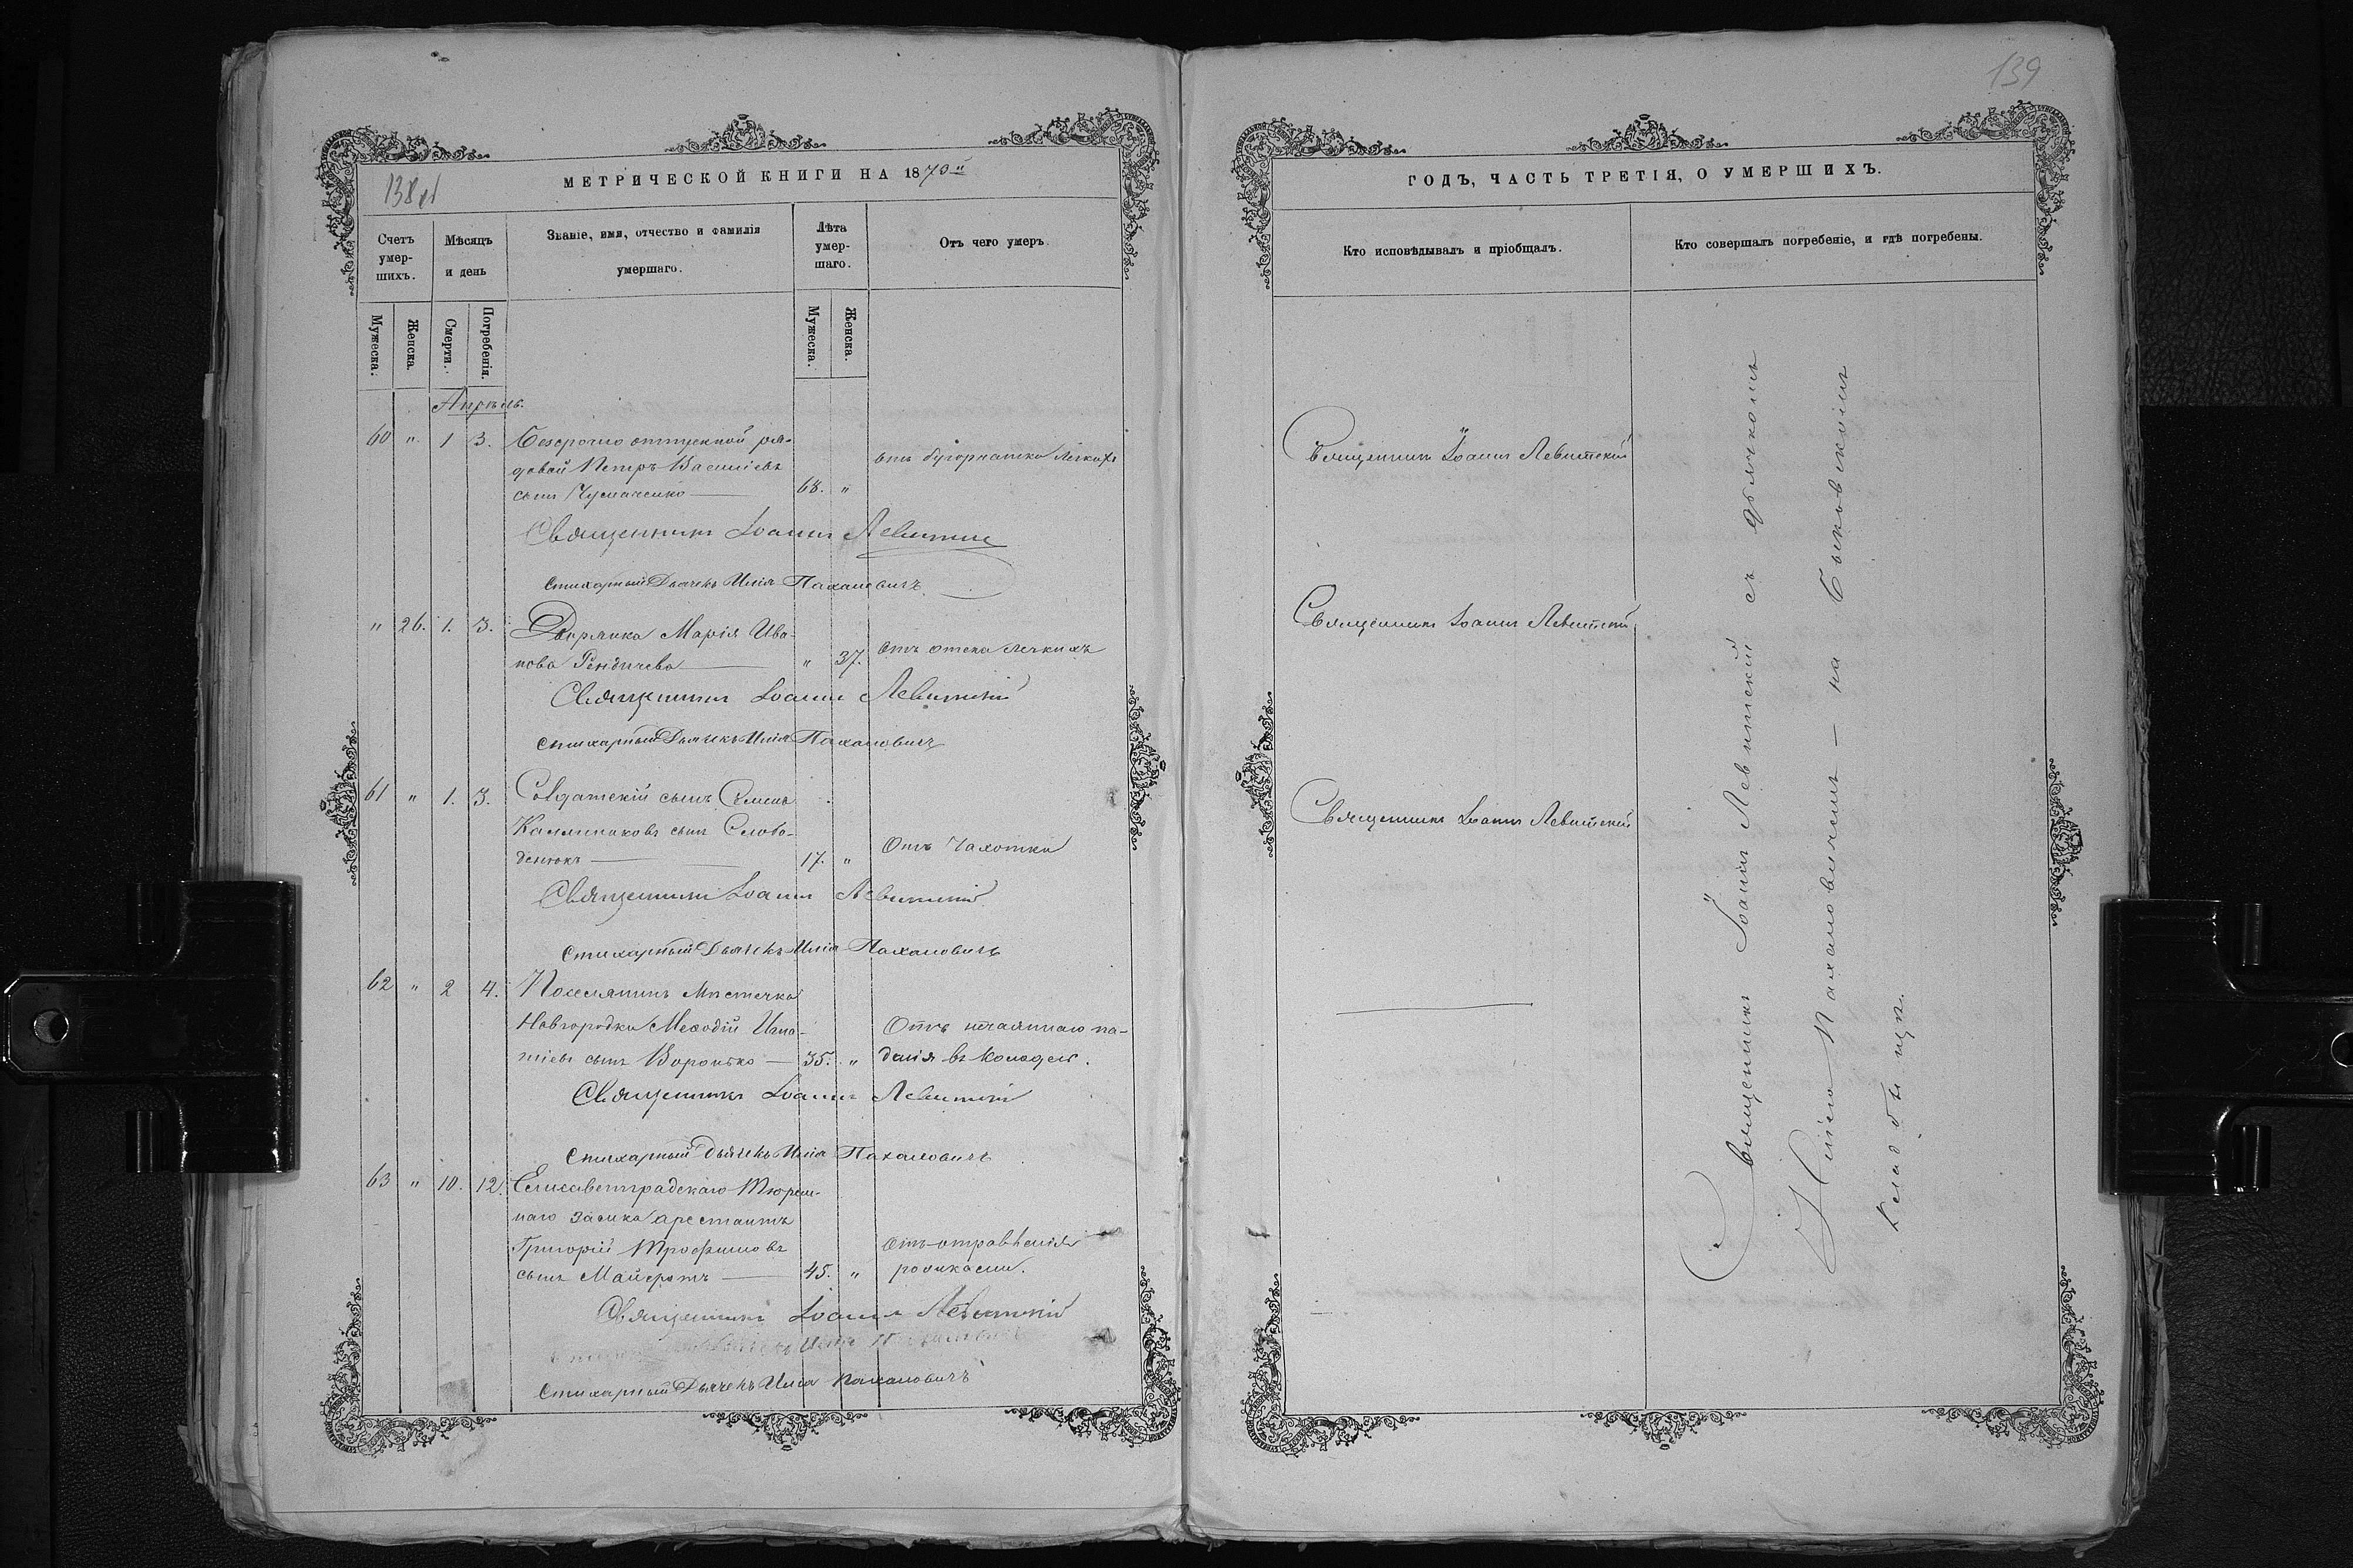 139
138 об
МЕТРИЧЕСКОЙ КНИГИ НА 1870й
Счетъ умер-шихъ.
Мѣсяцъ и день
Званіе, имя, отчество и фамилія умершаго.
Лѣта умер-шаго.
Отъ чего умеръ.
Мужеска.
Женска.
Смерти.
Погребенія.
Мужеска.
Женска.
Апрѣль.
60 " 1 3. Безсрочно отпускной ря-
довой Петръ Васильевъ
отъ бугорчатки легкихъ
сынъ Чумаченко — 68. "
Священникъ Іоаннъ Левитскій
Стихарный Дьячекъ Илія Пахаловичъ
" 26. 1. 3. Дворянка Марія Ива-
нова — " 37. Отъ отека легкихъ
Священникъ Іоаннъ Левитскій
стихарный Дьячекъ Илія Пахаловичъ
61 " 1. 3. Солдатскій сынъ Семенъ
Каллиниковъ сынъ Слобо-
денюкъ — 17. " Отъ Чахотки
Священникъ Іоаннъ Левитскій
Стихарный Дьячекъ Илія Пахаловичъ
62 " 2 4. Поселянинъ Мѣстечка
Новгородки Меѳодій Игна-
Отъ нечаяннаго па-
тіевъ сынъ — 35. " денія въ колодезь.
Священникъ Іоаннъ Левитскій
Стихарный Дьячекъ Илія Пахаловичъ
63 " 10. 12. Елисаветградскаго тюрем-
наго замка арестантъ
Григорій Трофимовъ
Отъ отравленія
сынъ — 45. "
Священникъ Іоаннъ Левитскій
Стихарный Дьячекъ Илія Пахаловичъ
ГОДЪ, ЧАСТЬ ТРЕТІЯ, О УМЕРШИХЪ.
Кто исповѣдывалъ и пріобщалъ.
Кто совершалъ погребеніе, и гдѣ погребены.
Священникъ Іоаннъ Левитскій
Священникъ Іоаннъ Левитскій
Священникъ Іоаннъ Левитскій
Священникъ Іоаннъ Левитскій съ дьячкомъ
Иліею Пахаловичемъ — на Быковскомъ
кладбищѣ.